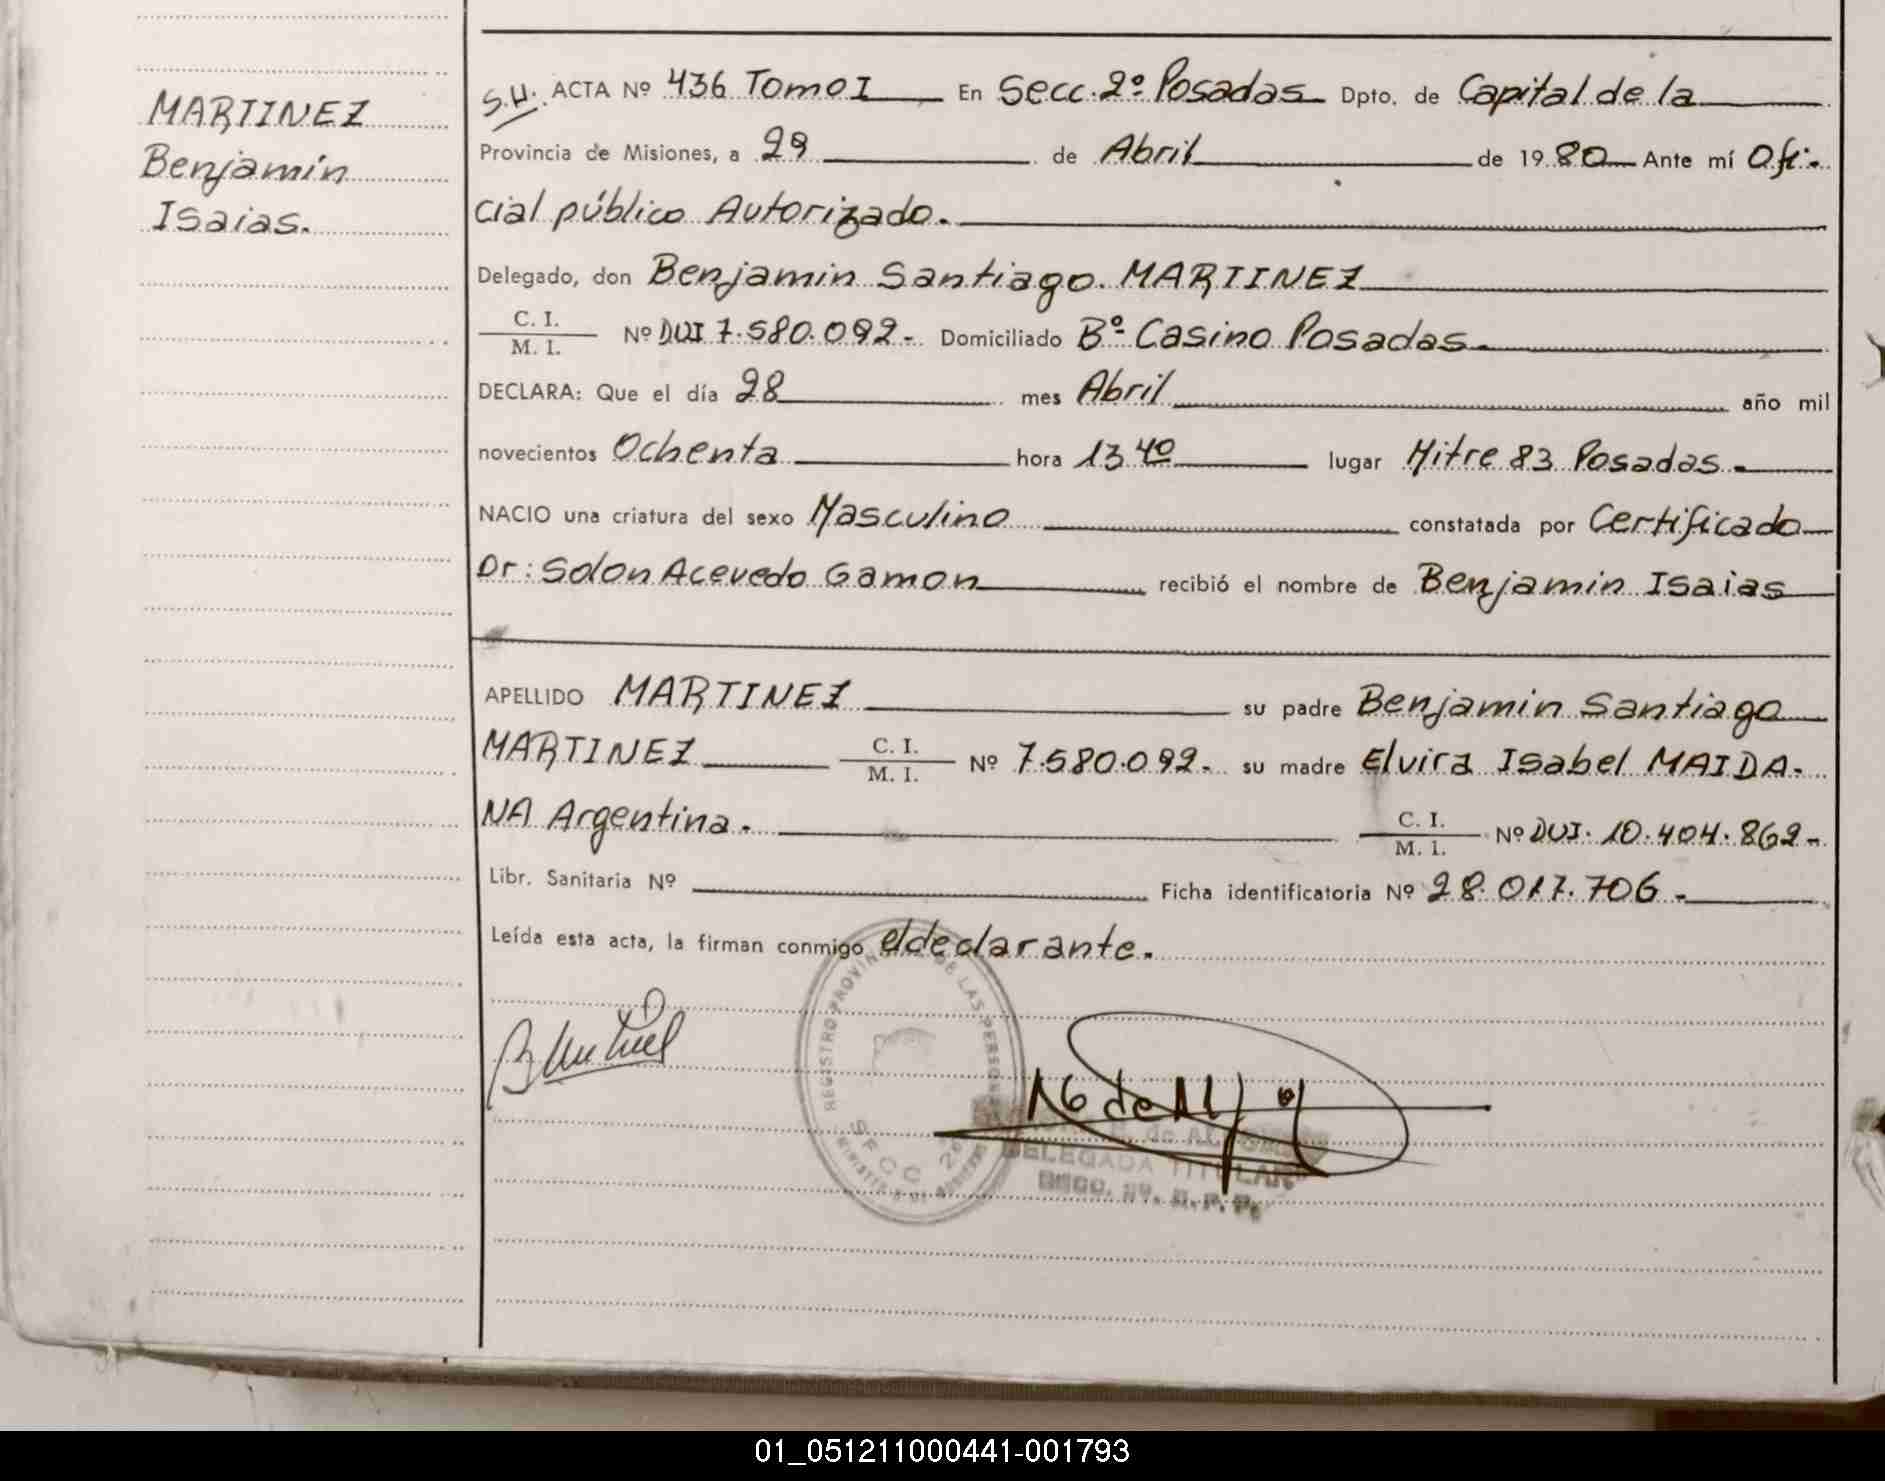 MARTINEZ
Benjamín
Isaias.
S.H. ACTA Nº 436 Tomo I En Secc. 2º Posadas Dpto. de Capital de la
Provincia de Misiones, a 29 de Abril de 1980 Ante mí Ofi-
cial público Autorizado.
Delegado, don Benjamin Santiago MARTINEZ
C. I.
M. I. Nº DUI 7.580.092.- Domiciliado Bº Casino Posadas.
DECLARA: Que el día 28 mes Abril año mil
novecientos Ochenta hora 13 40 lugar Mitre 83 Posadas.
NACIO una criatura del sexo Masculino constatada por Certificado
Dr: Solon Acevedo Gamon recibió el nombre de Benjamin Isaias
APELLIDO MARTINEZ su padre Benjamin Santiago
MARTINEZ C. I.
M. I. Nº 7.580.092.- su madre Elvira Isabel MAIDA-
NA Argentina. C. I.
M. I. Nº DUI. 10.404.862-
Libr. Sanitaria Nº Ficha identificatoria Nº 28.017.706.-
Leída esta acta, la firman conmigo el declarante.
REGISTRO PROVINCIAL DE LAS PERSONAS
SECC 2ª
DELEGADA TITULAR
01_051211000441-001793